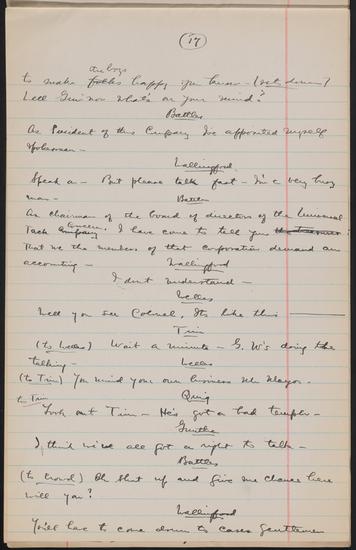 17
the boys
to make folks happy you know - (sits down)
Well Gen'mn what's on your mind?
Battles
As President of this Company I've appointed myself
spokesman -
Wallingford
Speak a - But please talk fast - I'm a very busy
man -
Battles
As chairman of the board of directors of the Universal
Tack Company Concern, I have come to tell you
That we the members of that corporation demand an
accounting -
Wallingford
I don't understand -
Welles
Well you see Colonel, Its like this
Tim
(to Welles) Wait a minute - G. W's doing the
talking -
Welles
(to Tim) You mind your own business Mr Mayor.
Quig
to Tim
Look out Tim - He's got a bad temper -
Gunther
I think we've all got a right to talk -
Battles
(to crowd) Oh shut up and give me chance here
will you?
Wallingford
You'll have to come down to cases gentlemen